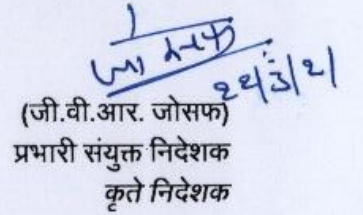 २२/३/२१
(जी.वी.आर. जोसफ)
प्रभारी संयुक्त निदेशक
कृते निदेशक